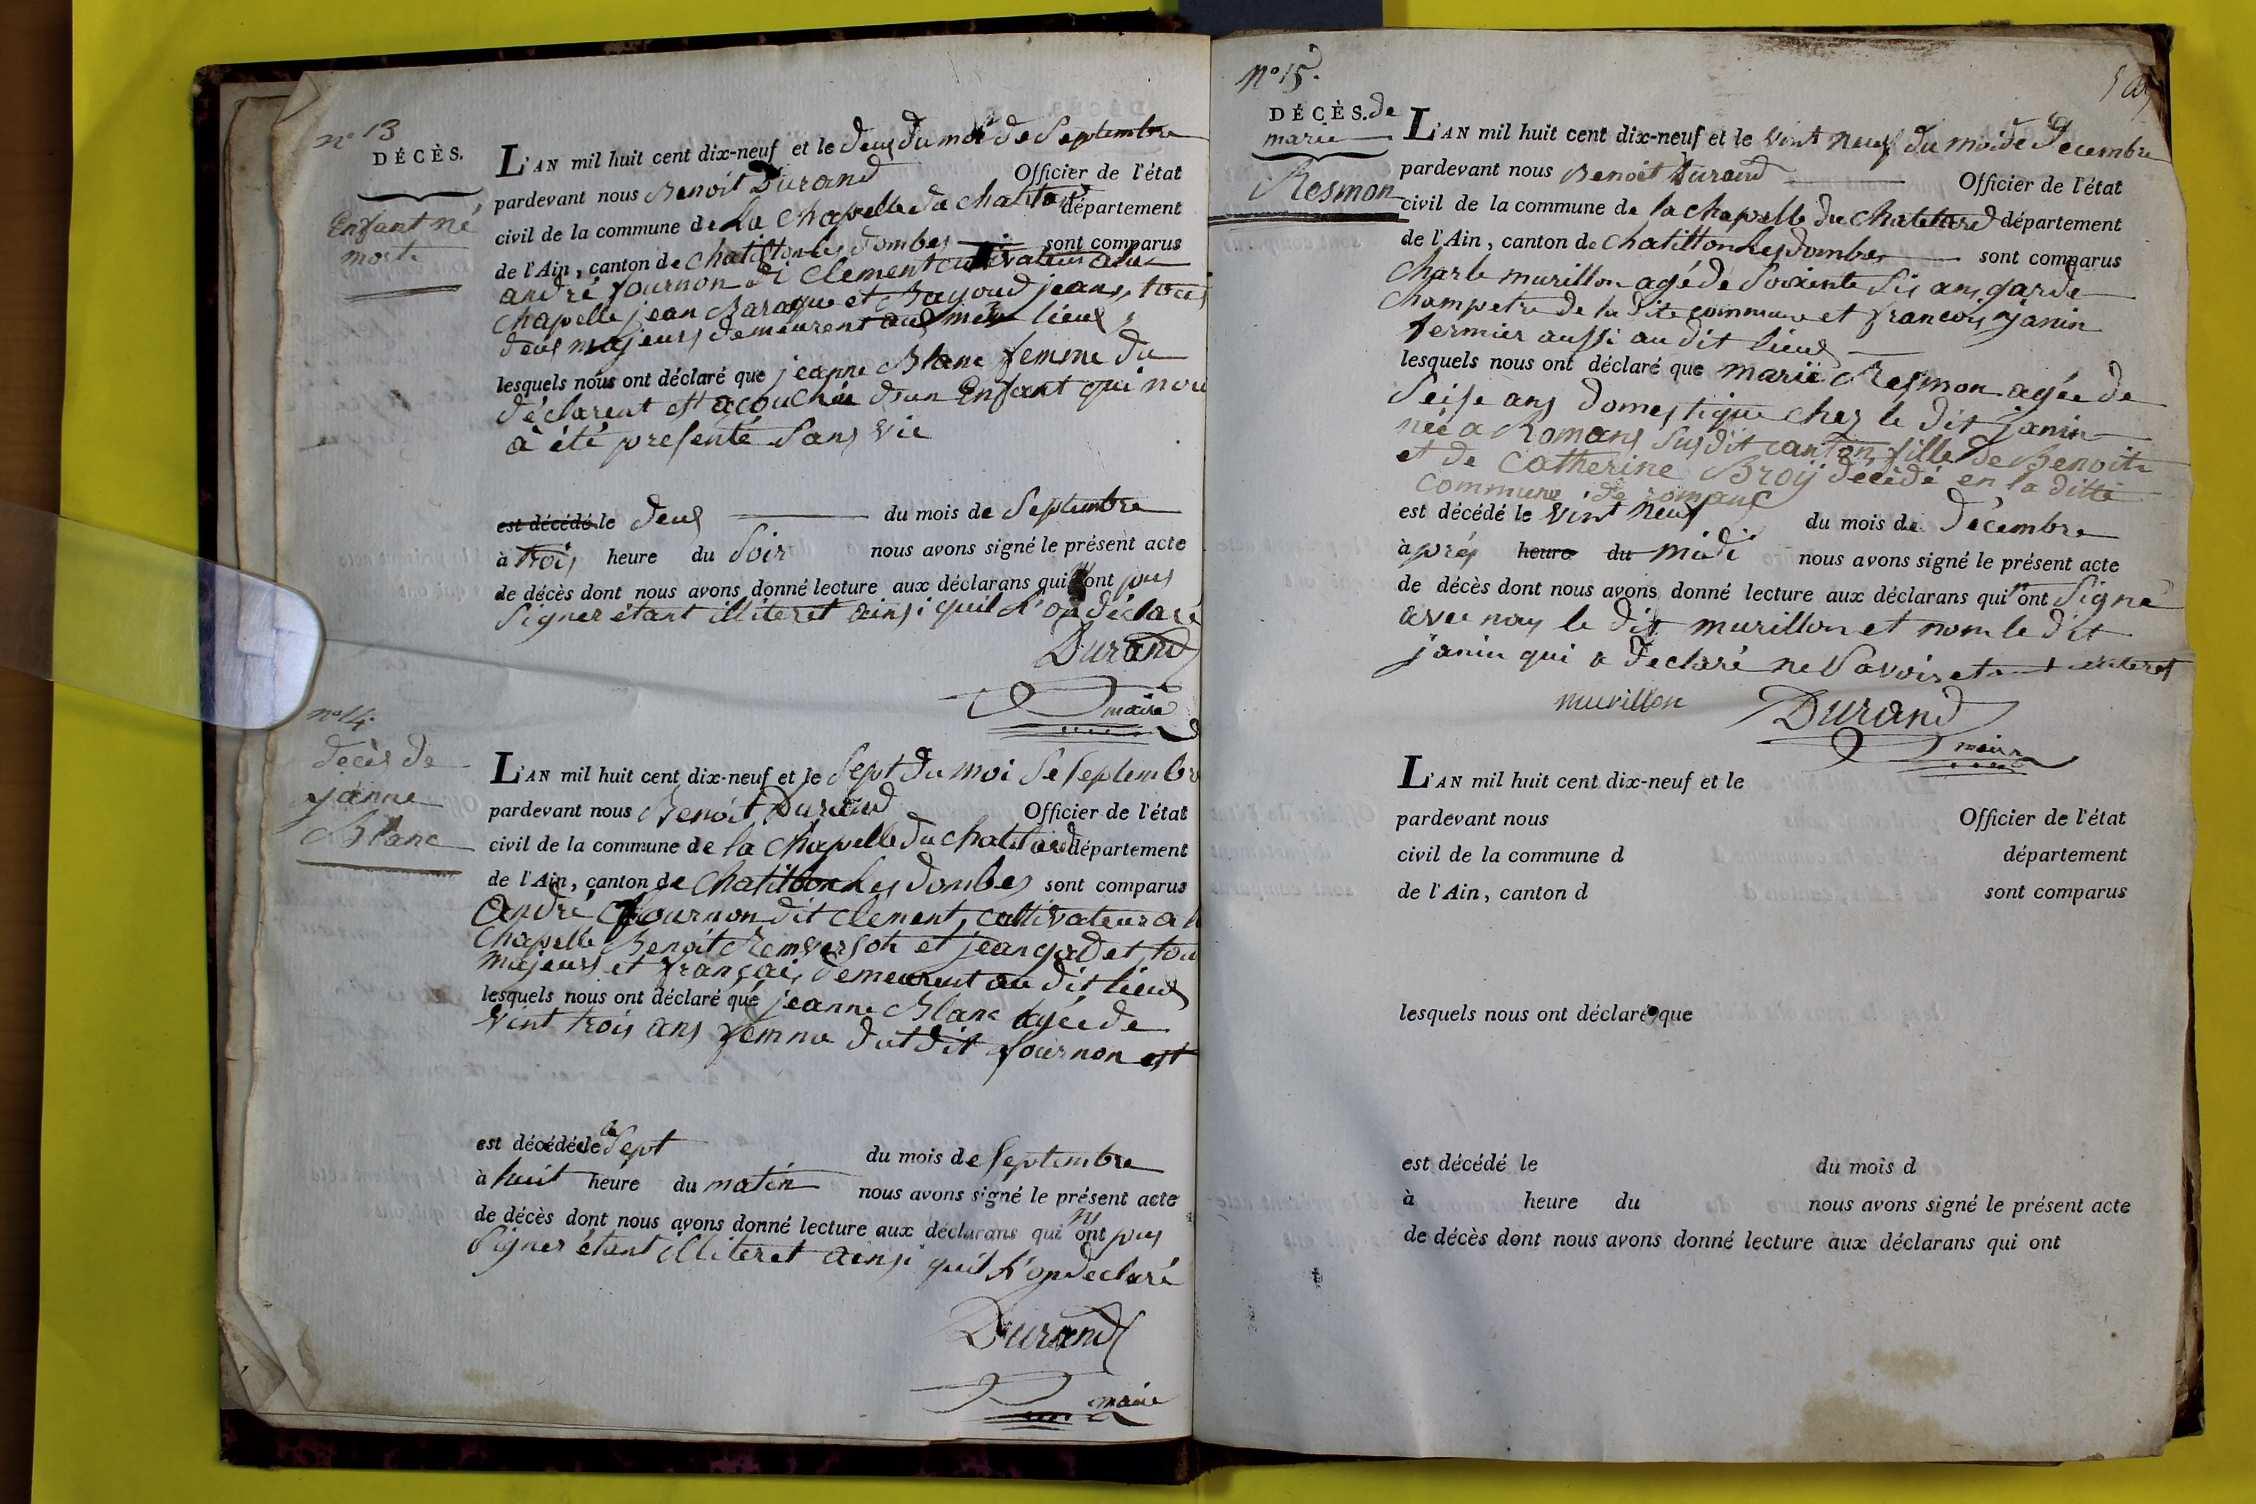 n° 13
DÉCÈS.
Enfant né
morte
L'AN mil huit cent dix-neuf et le deus du moi de Septembre
pardevant nous Benoit Durand Officier de l'état
civil de la commune de la chapelle du chatelard département
de l'Ain, canton de chatillon les dombes sont comparus
andré fournon di clement cultivateur a la
chapelle jean Baraque et Bayoud jean, tous
deus majeurs demeurent au meme lieus
lesquels nous ont déclaré que jeanne Blanc femme du
déclarent est acouchée d'un Enfant qui nou
à été presenté Sans vie
est décédé le deus du mois de Septembre
à trois heure du Soir nous avons signé le présent acte
de décès dont nous avons donné lecture aux déclarans qui n'ont pus
Signer étant illiteret ainsi quil l'on déclaré
Durand
maire
n° 14.
décès de
janne
Blanc
L'AN mil huit cent dix-neuf et le Sept du moi de Septembre
pardevant nous Benoit Durand Officier de l'état
civil de la commune de la chapelle du chatelard département
de l'Ain, canton de chatillon les dombes sont comparus
andré fournon dit clement, cultivateur a la
chapelle Benoit Remversote et jean gadet, tou
majeurs et français demeurent au dit lieus
lesquels nous ont déclaré que jeanne Blanc agée de
vint trois ans femme dut dit fournon est
est décédée le Sept du mois de Septembre
à huit heure du matin nous avons signé le présent acte
de décès dont nous avons donné lecture aux déclarans qui n'ont pus
Signer étant illiteret ainsi quil l'on declaré
Durand
maire
N° 15.
DÉCÈS. de
marie
Resmon
L'AN mil huit cent dix-neuf et le vint neuf du moi de Decembre
pardevant nous Benoit Durand Officier de l'état
civil de la commune de la chapelle du chatelard département
de l'Ain, canton de chatillon les dombes sont comparus
Charle murillon agé de Soixente Sis ans garde
champetre de la dite commune et francois janin
fermier aussi au dit lieus
lesquels nous ont déclaré que marie Resmon agée de
Seise ans domestique chez le dit janin
née a Romans Susdit canton fille de Benoit
et de Catherine Broÿ décédé en la ditte
commune de romans
est décédé le vint neuf du mois de décembre
àprés heure du midi nous avons signé le présent acte
de décès dont nous avons donné lecture aux déclarans qui ont Signé
avec nous le dit murillon et nom le dit
janin qui a declaré ne Savoir illiteret
murillon
Durand
maire
L'AN mil huit cent dix-neuf et le
pardevant nous Officier de l'état
civil de la commune d département
de l'Ain, canton d sont comparus
lesquels nous ont déclaré que
est décédé le du mois d
à heure du nous avons signé le présent acte
de décès dont nous avons donné lecture aux déclarans qui ont